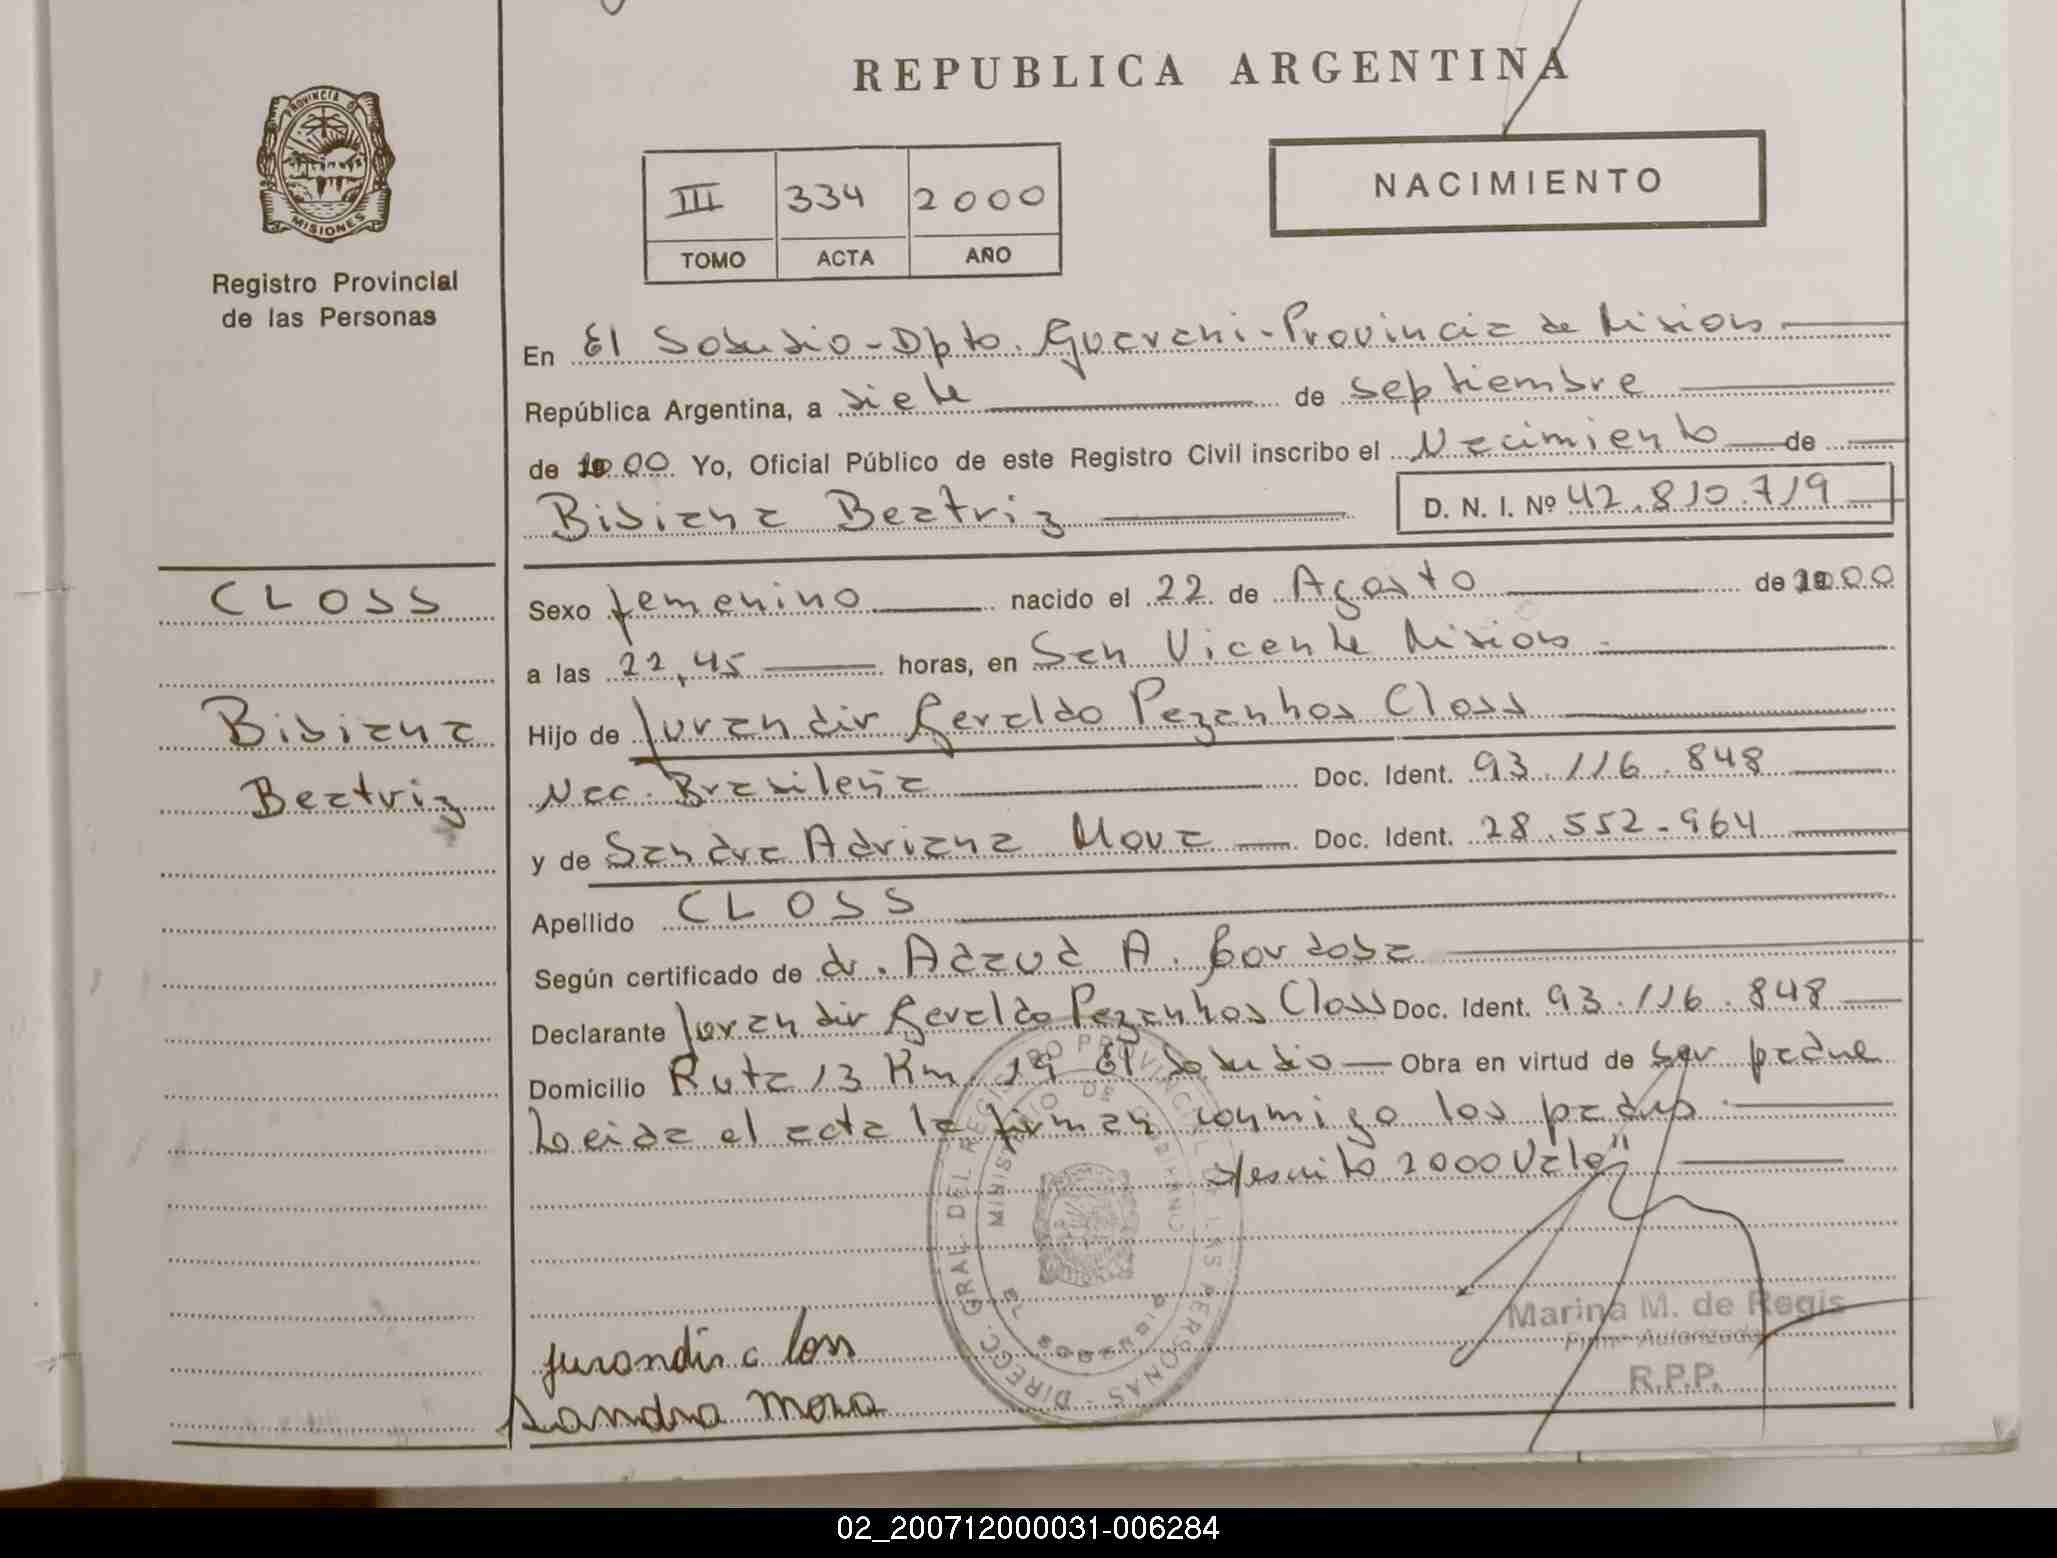 REPUBLICA ARGENTINA
PROVINCIA D
MISIONES
Registro Provincial
de las Personas
III 334 2000
TOMO ACTA AÑO
NACIMIENTO
En El Soberbio - Dpto. Guarani - Provincia de Misiones
República Argentina, a siete de septiembre
de 2000 Yo, Oficial Público de este Registro Civil inscribo el Nacimiento de
Bibiana Beatriz D. N. I. Nº 42.810.719
CLOSS
Bibiana
Beatriz
Sexo femenino nacido el 22 de Agosto de 2000
a las 22,45 horas, en San Vicente Misiones
Hijo de Jurandir Geraldo Pezanhos Closs
Nac. Brasileña Doc. Ident. 93.116.848
y de Sandra Adriana Mora Doc. Ident. 28.552.964
Apellido CLOSS
Según certificado de dr. A. Cordoba
Declarante Jurandir Geraldo Pezanhos Closs Doc. Ident. 93.116.848
Domicilio Ruta 13 Km. 19 El Soberbio Obra en virtud de ser padre
Leida el acta la firman conmigo los padres
s/escrito 2000 Vale"
DIRECC. GRAL. DEL REGISTRO PROVINCIAL DE LAS PERSONAS
MINISTERIO DE GOBIERNO
EL SOBERBIO
Marina M. de Regis
Firma Autorizada
R.P.P.
jurandir c loss
Sandra Mora
02_200712000031-006284